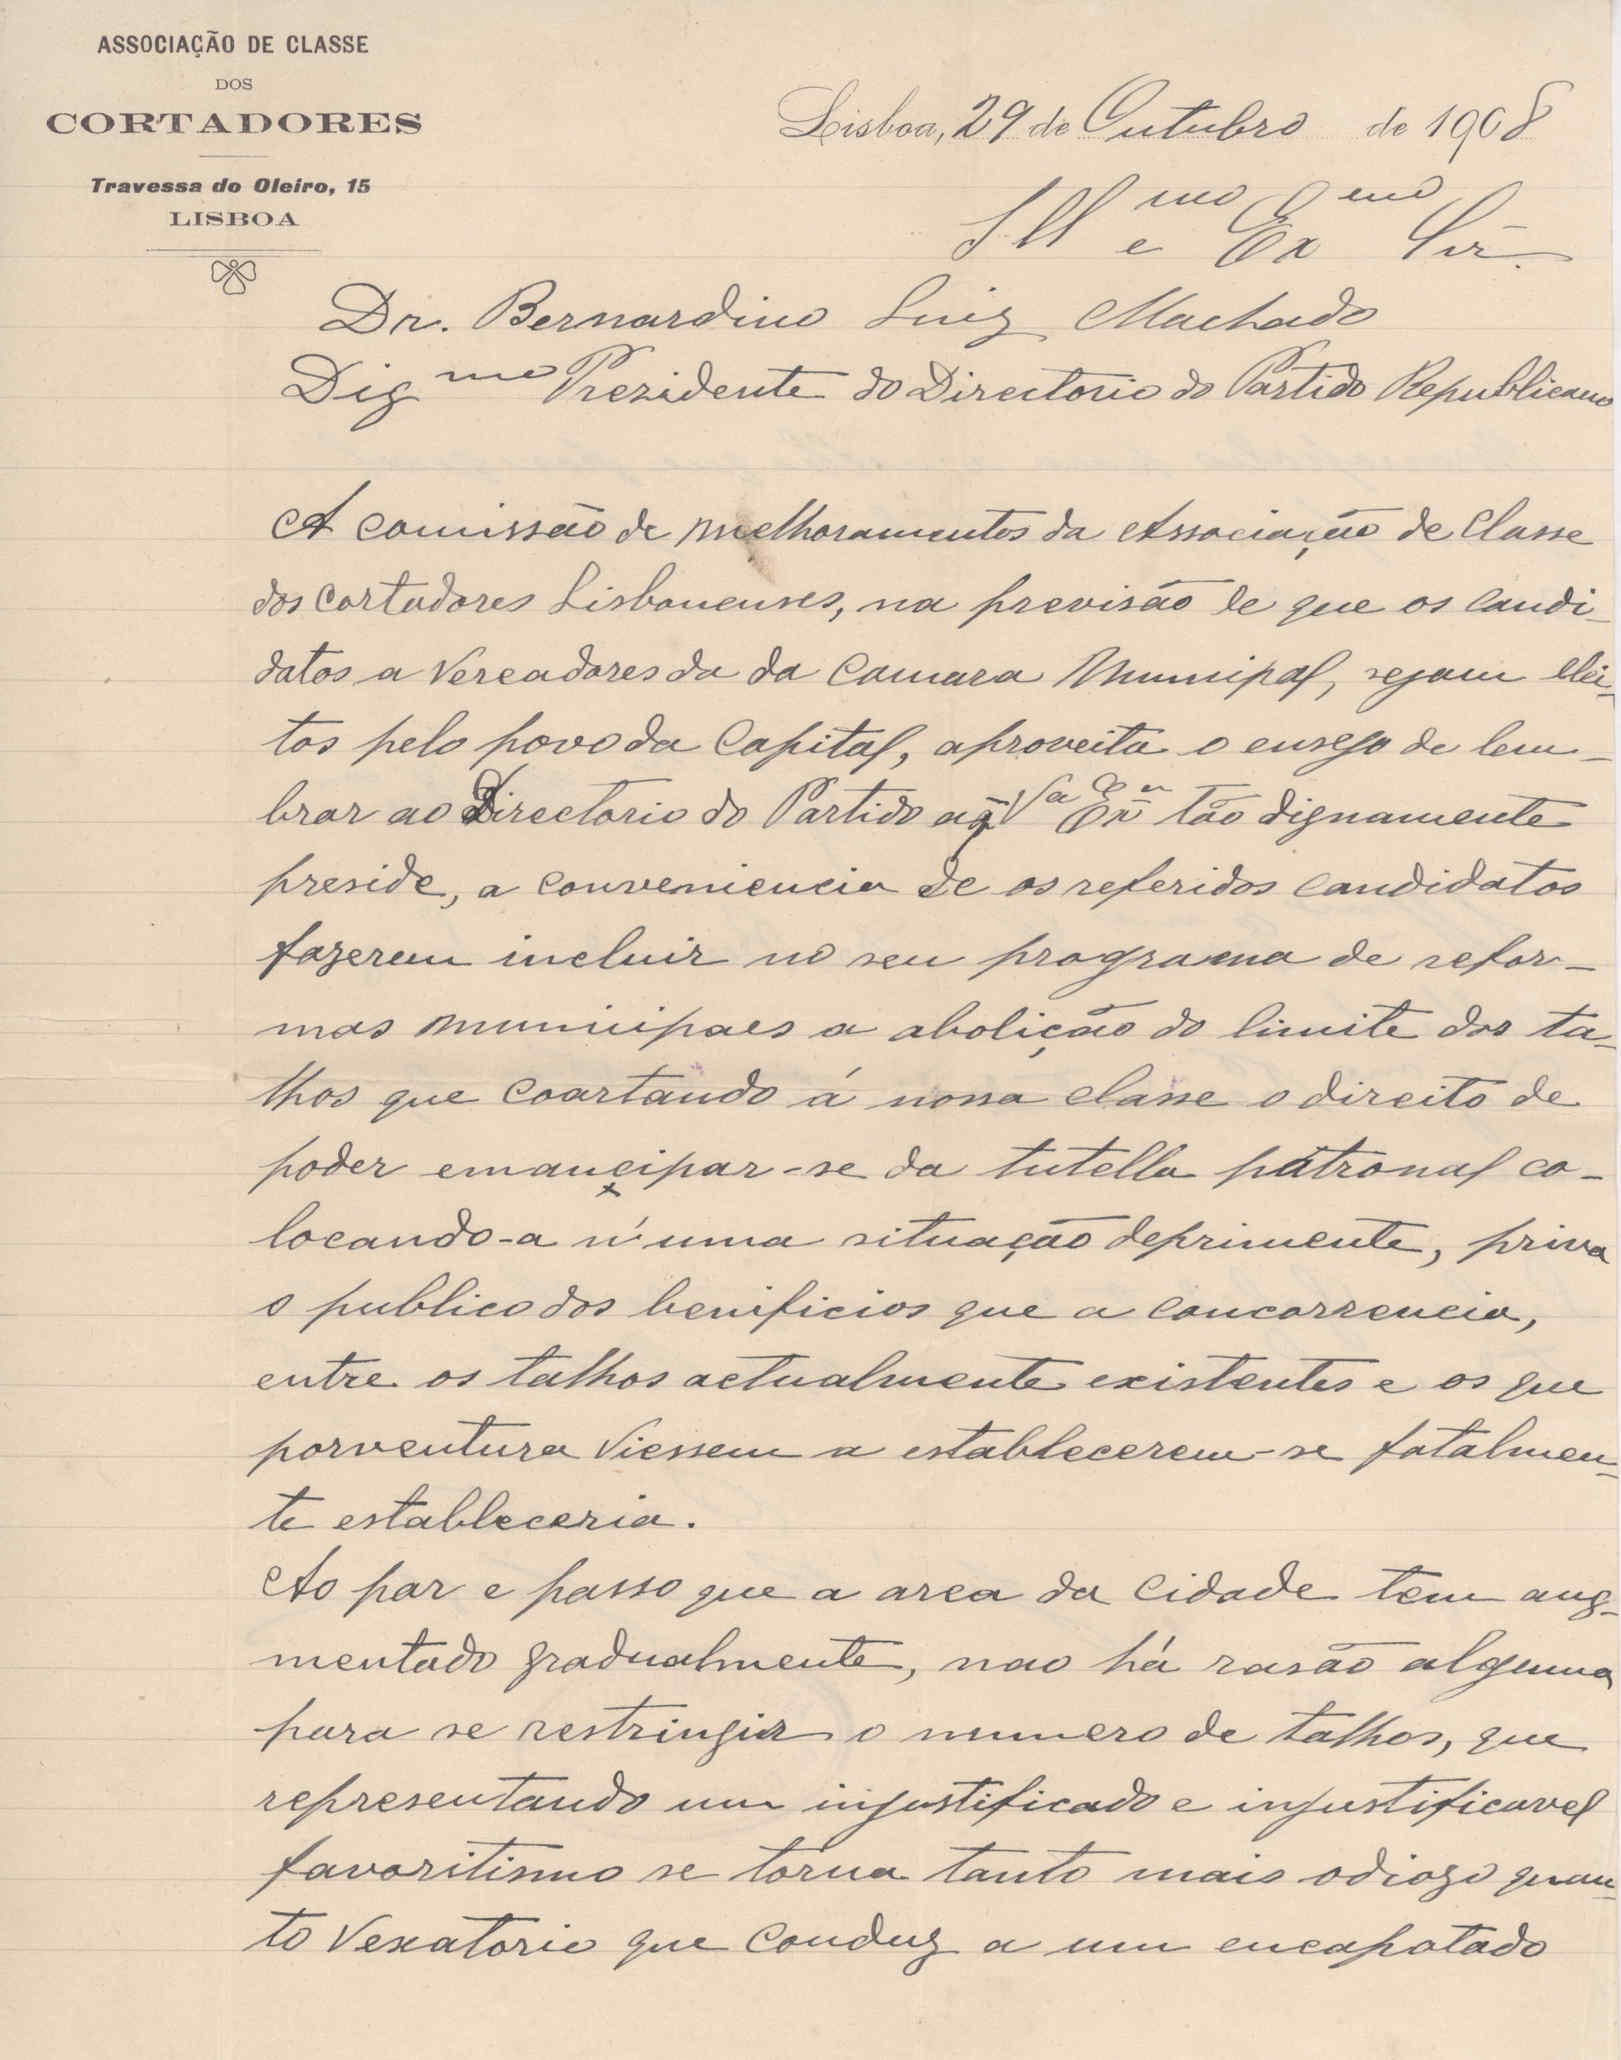 ASSOCIAÇÃO DE CLASSE
DOS
CORTADORES
Travessa do Oleiro, 15
LISBOA
Lisboa, 29 de Outubro de 1908
Ill.mo e Ex.mo Snr.
Dr. Bernardino Luiz Machado
Dig.mo Prezidente do Directorio do Partido Republicano
A comissão de melhoramentos da Associação de Classe
dos cortadores Lisbonenses, na previsão de que os candi-
datos a Vereadores da da Camara Municipal, sejam elei-
tos pelo povo da Capital, aproveita o ensejo de lem-
brar ao Directorio do Partido a q̃ V.a Ex.a tão dignamente
preside, a conveniencia de os referidos candidatos
fazerem incluir no seu programa de refor-
mas municipaes a abolição do limite dos ta-
lhos que coartando á nossa classe o direito de
poder emancipar-se da tutella patronal co-
locando-a n'uma situação deprimente, priva
o publico dos benificios que a concorrencia,
entre os talhos actualmente existentes e os que
porventura viessem a establecerem-se fatalmen-
te estableceria.
Ao par e passo que a area da cidade tem aug-
mentado gradualmente, nao há rasão alguma
para se restringir o numero de talhos, que
representando um injustificado e injustificavel
favoritismo se torna tanto mais odiozo quan-
to Vexatorio que conduz a um encapotado